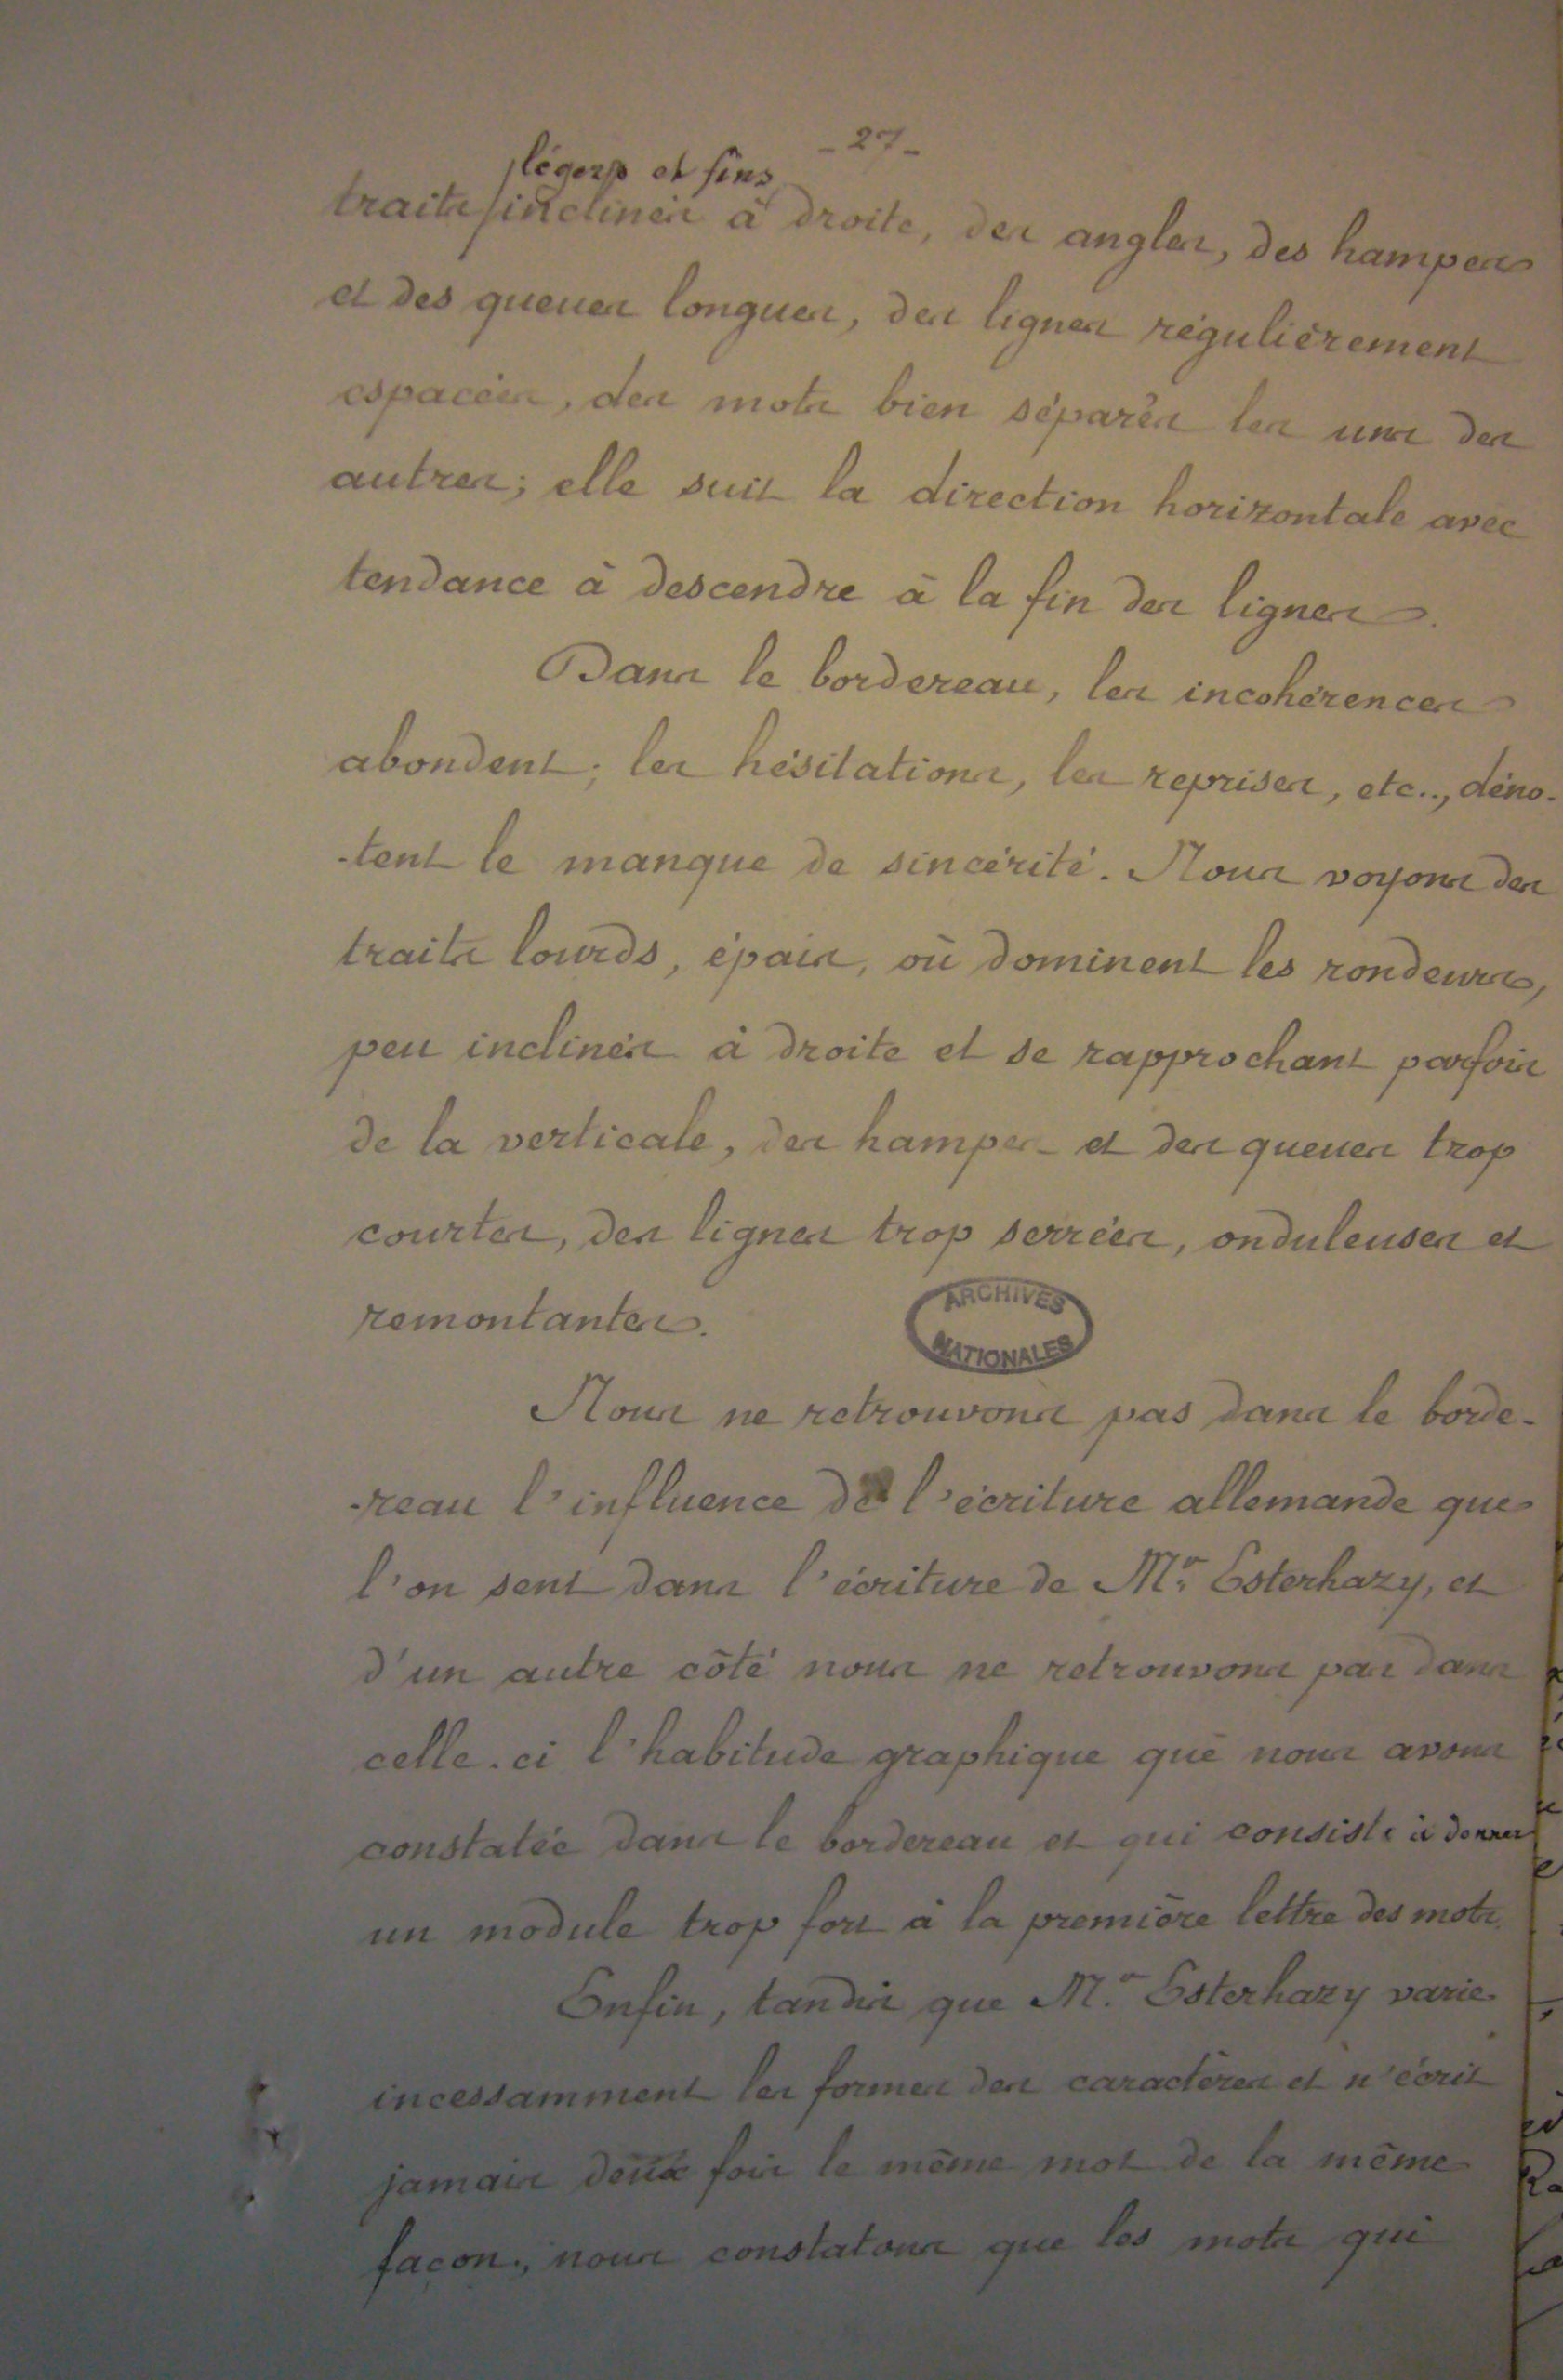 - 27 -
légers et fins
traits / inclinés à droite, des angles, des hampes
et des queues longues, des lignes régulièrement
espacées, des mots bien séparés les uns des
autres; elle suit la direction horizontale avec
tendance à descendre à la fin des lignes.
Dans le bordereau, les incohérences
abondent; les hésitations, les reprises, etc.., déno-
-tent le manque de sincérité. Nous voyons des
traits lourds, épais, où dominent les rondeurs,
peu inclinés à droite et se rapprochant parfois
de la verticale, des hampes et des queues trop
courtes, des lignes trop serrées, onduleuses et
remontantes.
ARCHIVES
NATIONALES
Nous ne retrouvons pas dans le borde-
-reau l'influence de l'écriture allemande que
l'on sent dans l'écriture de Mr. Esterhazy, et
d'un autre côté nous ne retrouvons pas dans
celle-ci l'habitude graphique que nous avons
constatée dans le bordereau et qui consiste à donner
un module trop fort à la première lettre des mots.
Enfin, tandis que Mr. Esterhazy varie
incessamment les formes des caractères et n'écrit
jamais deux fois le même mot de la même
façon, nous constatons que les mots qui